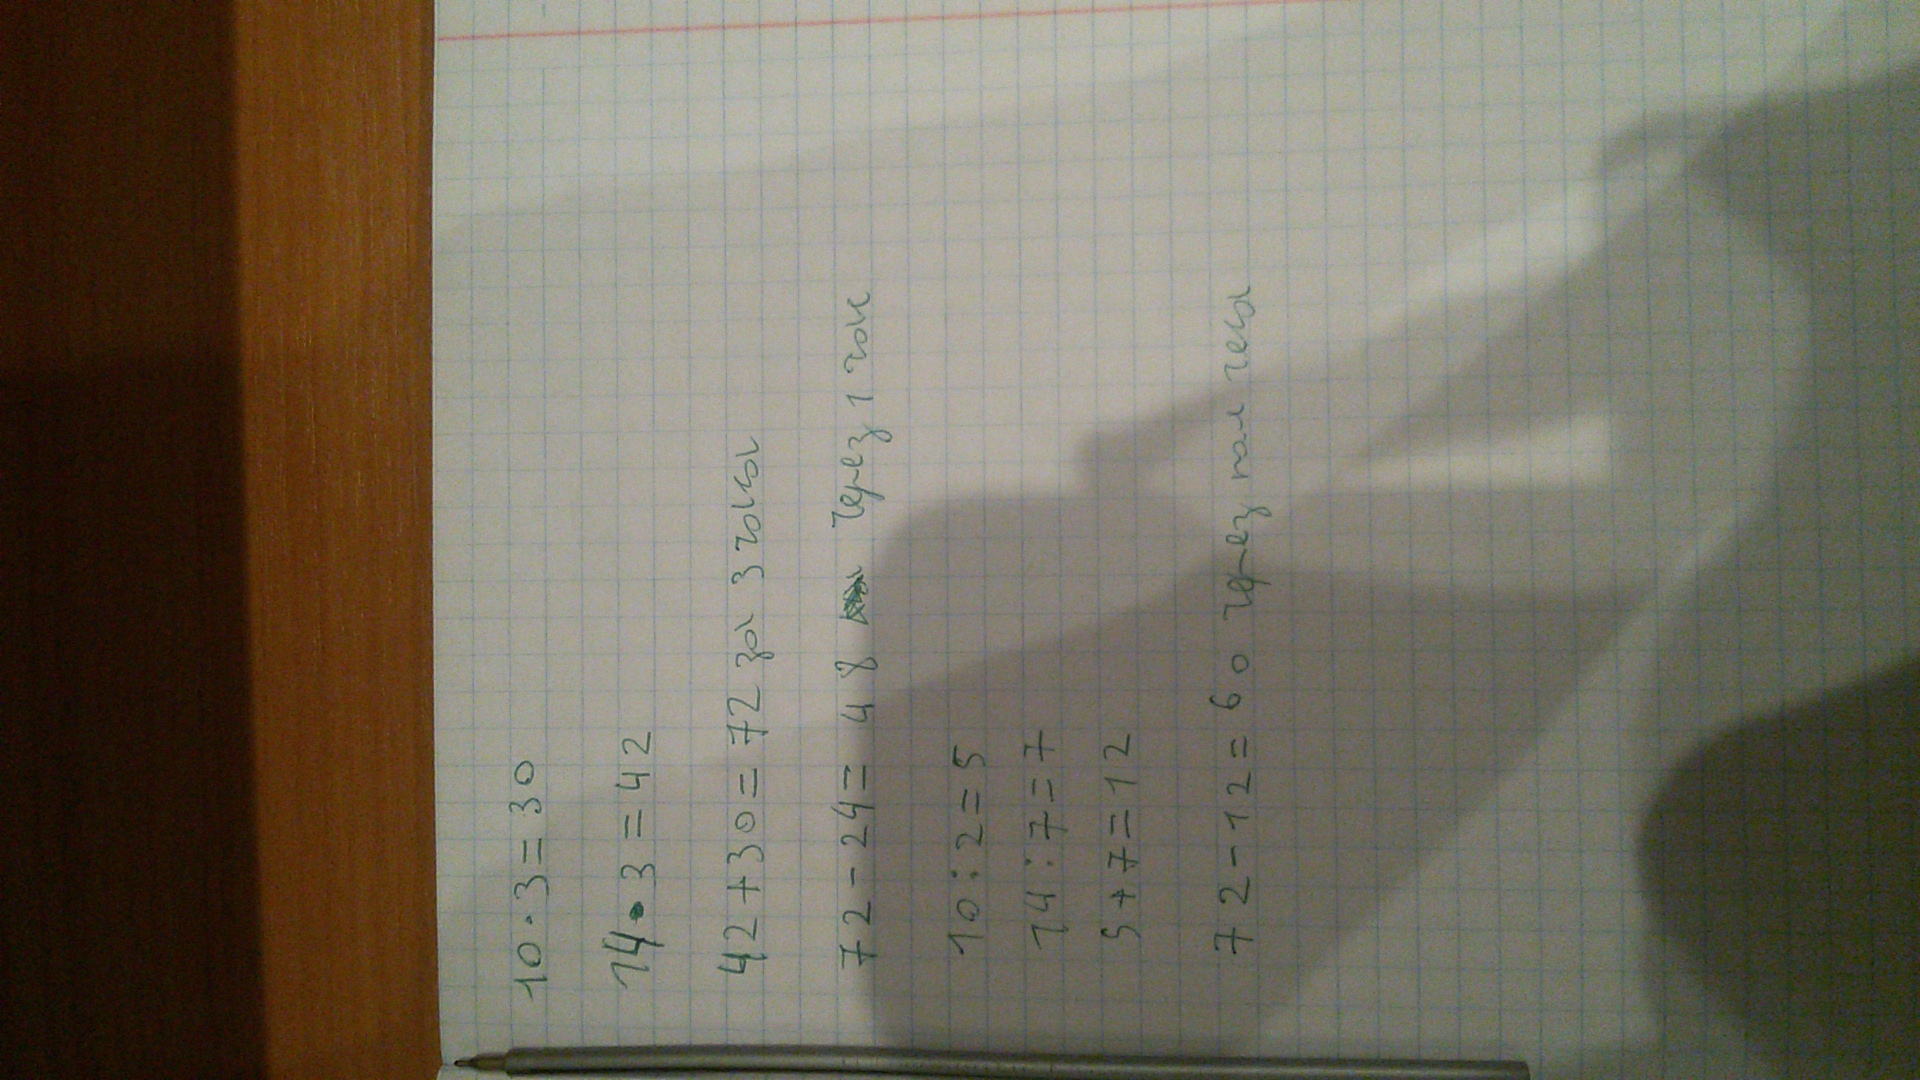 10·3=30
14·3=42
42+30=72 за 3 часа
72-24=48 через 1 час
10:2=5
14:7=7
5+7=12
72-12=60 через пол часа